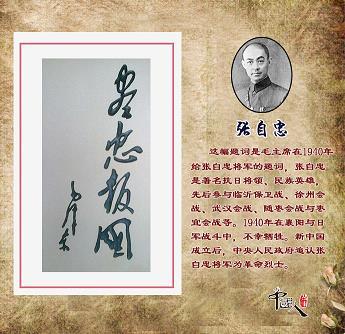 尽忠报国
毛泽东
张自忠
这幅题词是毛主席在1940年
给张自忠将军的题词，张自忠
是著名抗日将领、民族英雄，
先后参与临沂保卫战、徐州会
战、武汉会战、随枣会战与枣
宜会战等。1940年在襄阳与日
军战斗中，不幸牺牲。新中国
成立后，中央人民政府追认张
自忠将军为革命烈士。